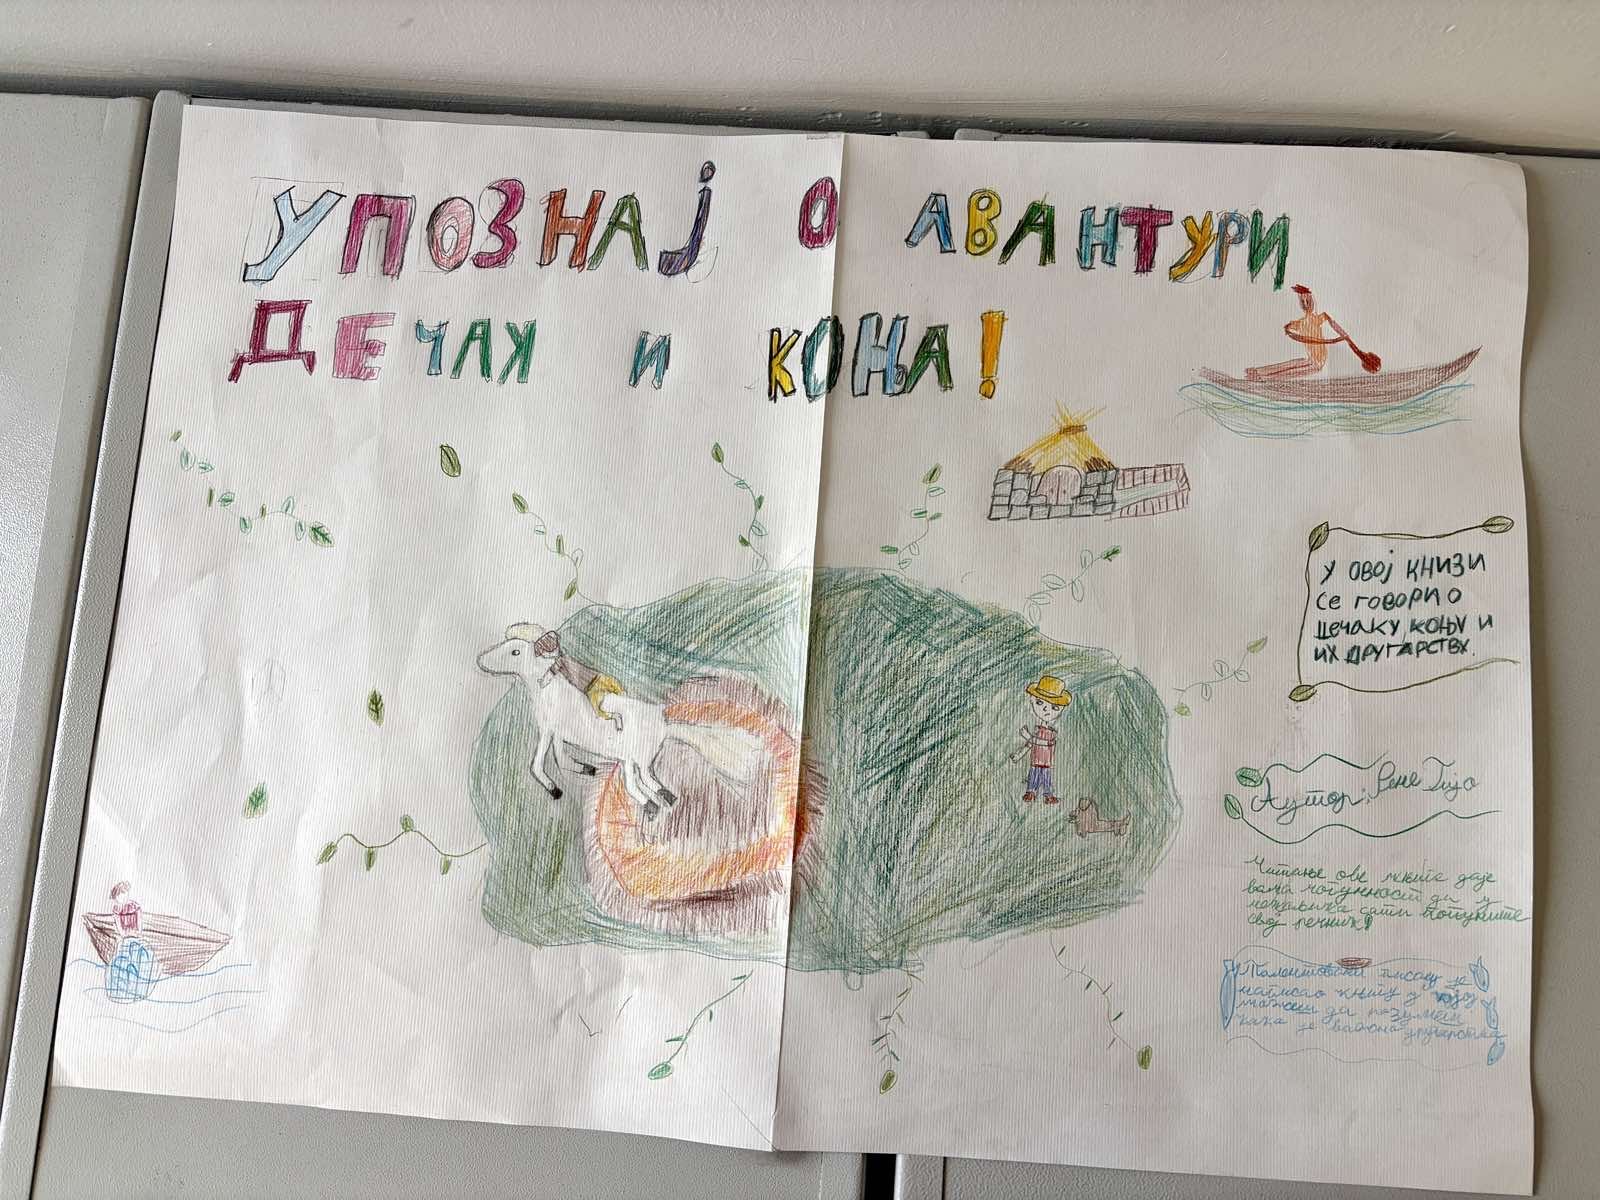 УПОЗНАЈ О АВАНТУРИ
ДЕЧАК И КОЊА!
У ОВОЈ КНИЗИ
СЕ ГОВОРИ О
ДЕЧАКУ КОЊУ И
ИХ ДРУГАРСТВУ.
Аутор: Рене Гијо
Читање ове књиге даје
вама могућност да у
неколико сати попуните
свој речник!
Талентовани писац је
написао књигу у којој
можеш да разумеш
како је важно другарство